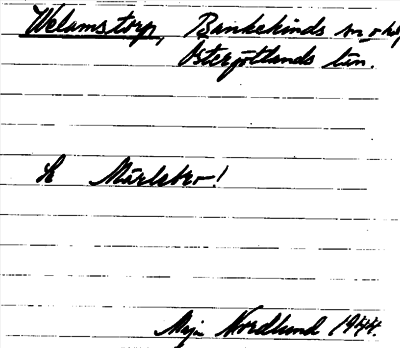 Welamstorp, Bankekinds sn o hd
Östergötlands län.
Lt Mårlebo!
Maja Nordlund 1944.